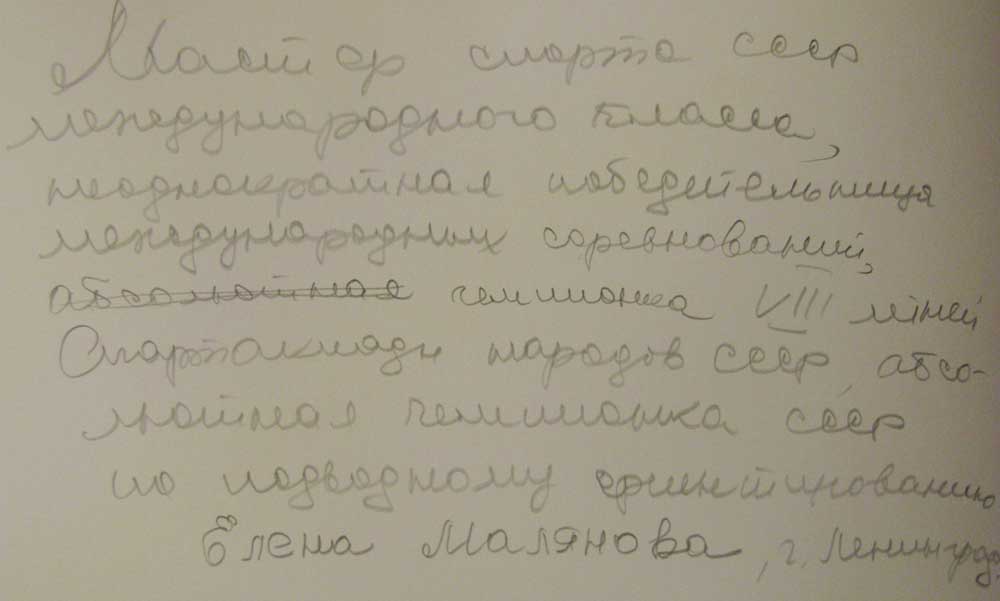 Мастер спорта СССР
международного класса,
неоднократная победительница
международных соревнований,
абсолютная чемпионка VIII летней
Спартакиады народов СССР, абсо-
лютная чемпионка СССР
по подводному ориентированию
Елена Малянова, г. Ленинград.